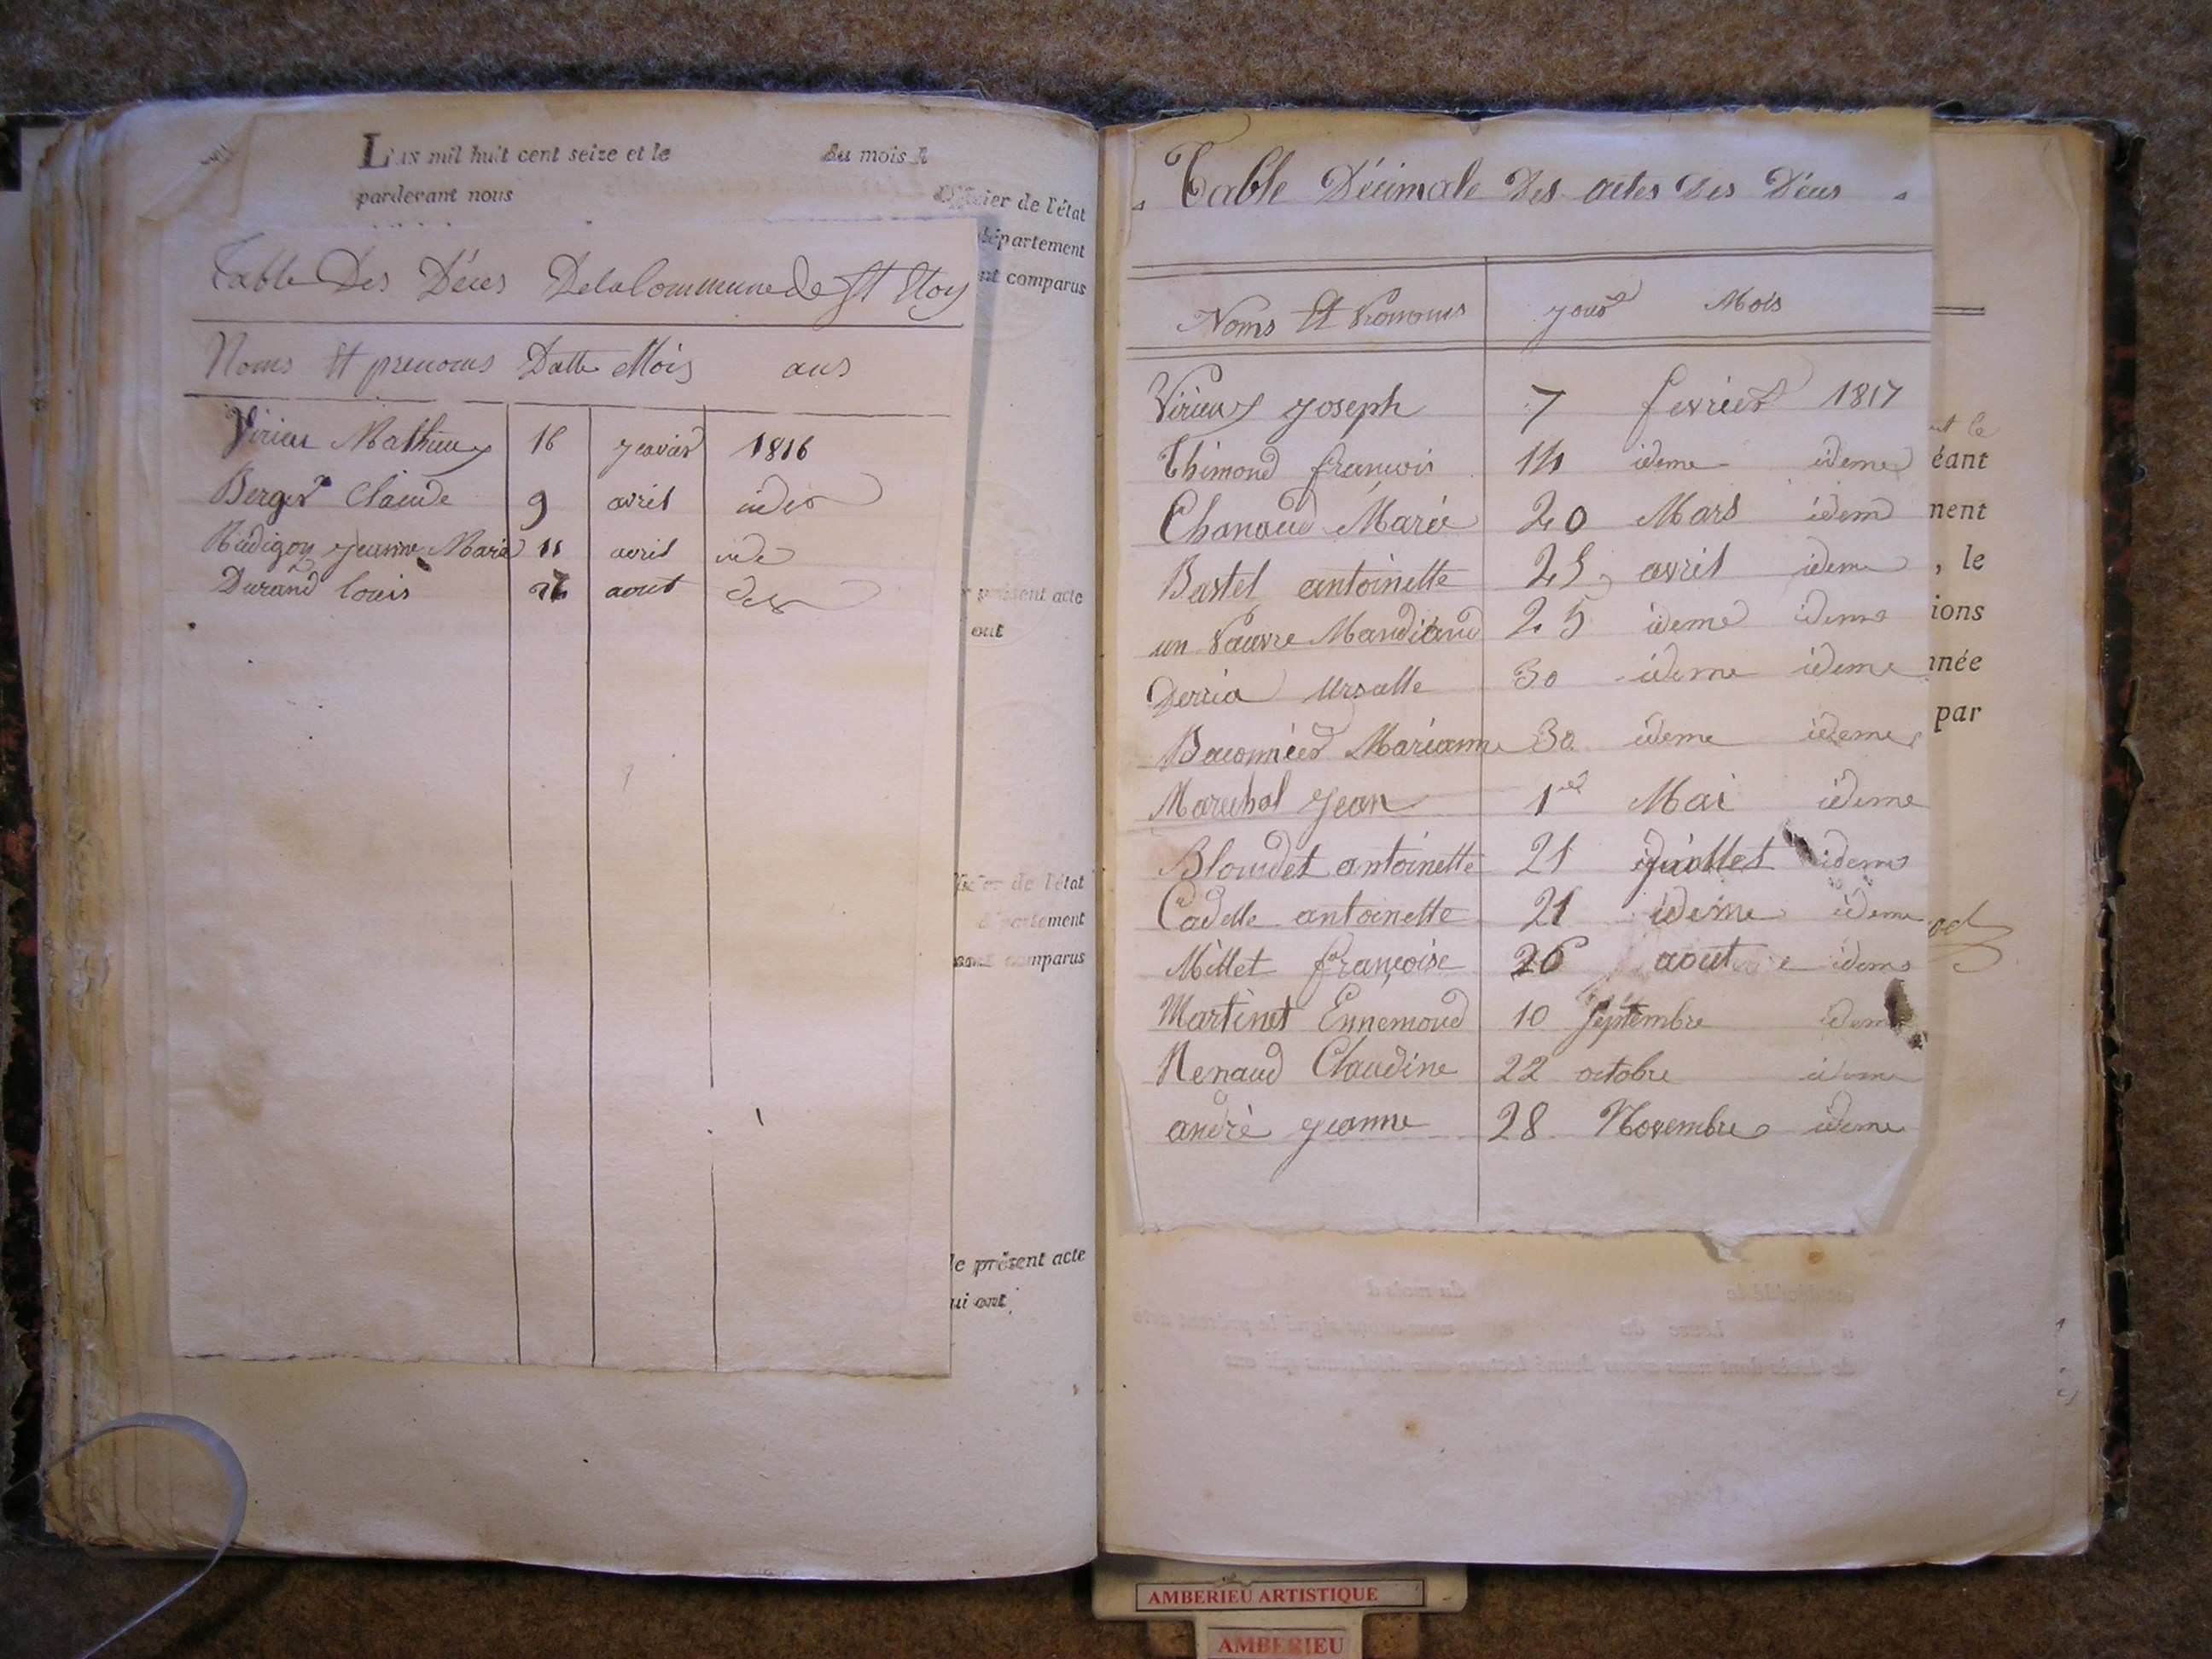 L'an mil huit cent seize et le du mois d
pardevant nous
Officier de l'état
département
ont comparus
Table Des Déces De la Commune de St Eloy
Noms et prenoms Datte Mois ans
Virieu Mathieu 16 Janvier 1816
Berger Claude 9 avril
Jeanne Marie 11 avril
Durand louis aout
présent acte
ont
de l'état
département
comparus
le présent acte
qui ont
Table Décimale Des actes des Déces
Noms Et Prenoms jour Mois
Virieux joseph 7 fevrier 1817
Thimond francois 14 ideme ideme
Chanaud Marie 20 Mars idem
Bastet antoinette 25 avril ideme
un Pauvre Mandiand 25 ideme idem
Derria Ursulle 30 ideme ideme
Baconnier Marianne 30 ideme ideme
Marechal Jean 1er Mai ideme
Bloudet antoinette 21 juillet idem
Cadette antoinette 21 ideme ideme
Millet françoise 26 aout idem
Martinet Ennemond 10 Septembre idem
Renaud Claudine 22 octobre ideme
andrè jeanne 28 Novembre ideme
éant
nent
, le
ions
nnée
par
AMBERIEU ARTISTIQUE
AMBERIEU